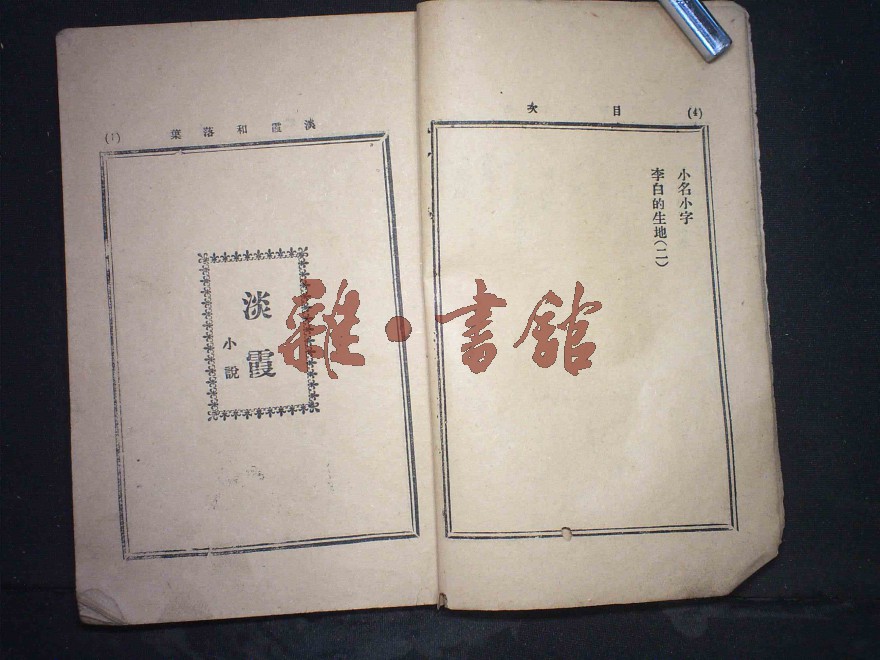 (4)
目次
小名小字
李白的生地(二)
淡霞和落葉
(1)
淡霞
小說
雜·書館